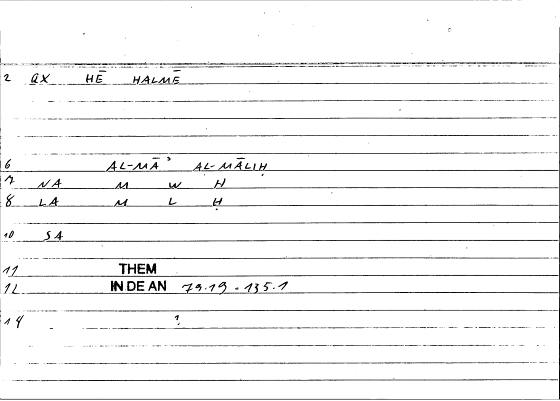 2 ax HĒ HALMĒ
6 AL-MĀʾ AL-MĀLIḤ
7 NA M W H
8 LA M L Ḥ
10 SA
11 THEM
12 IN DE AN 79.19 - 135.1
14 ?